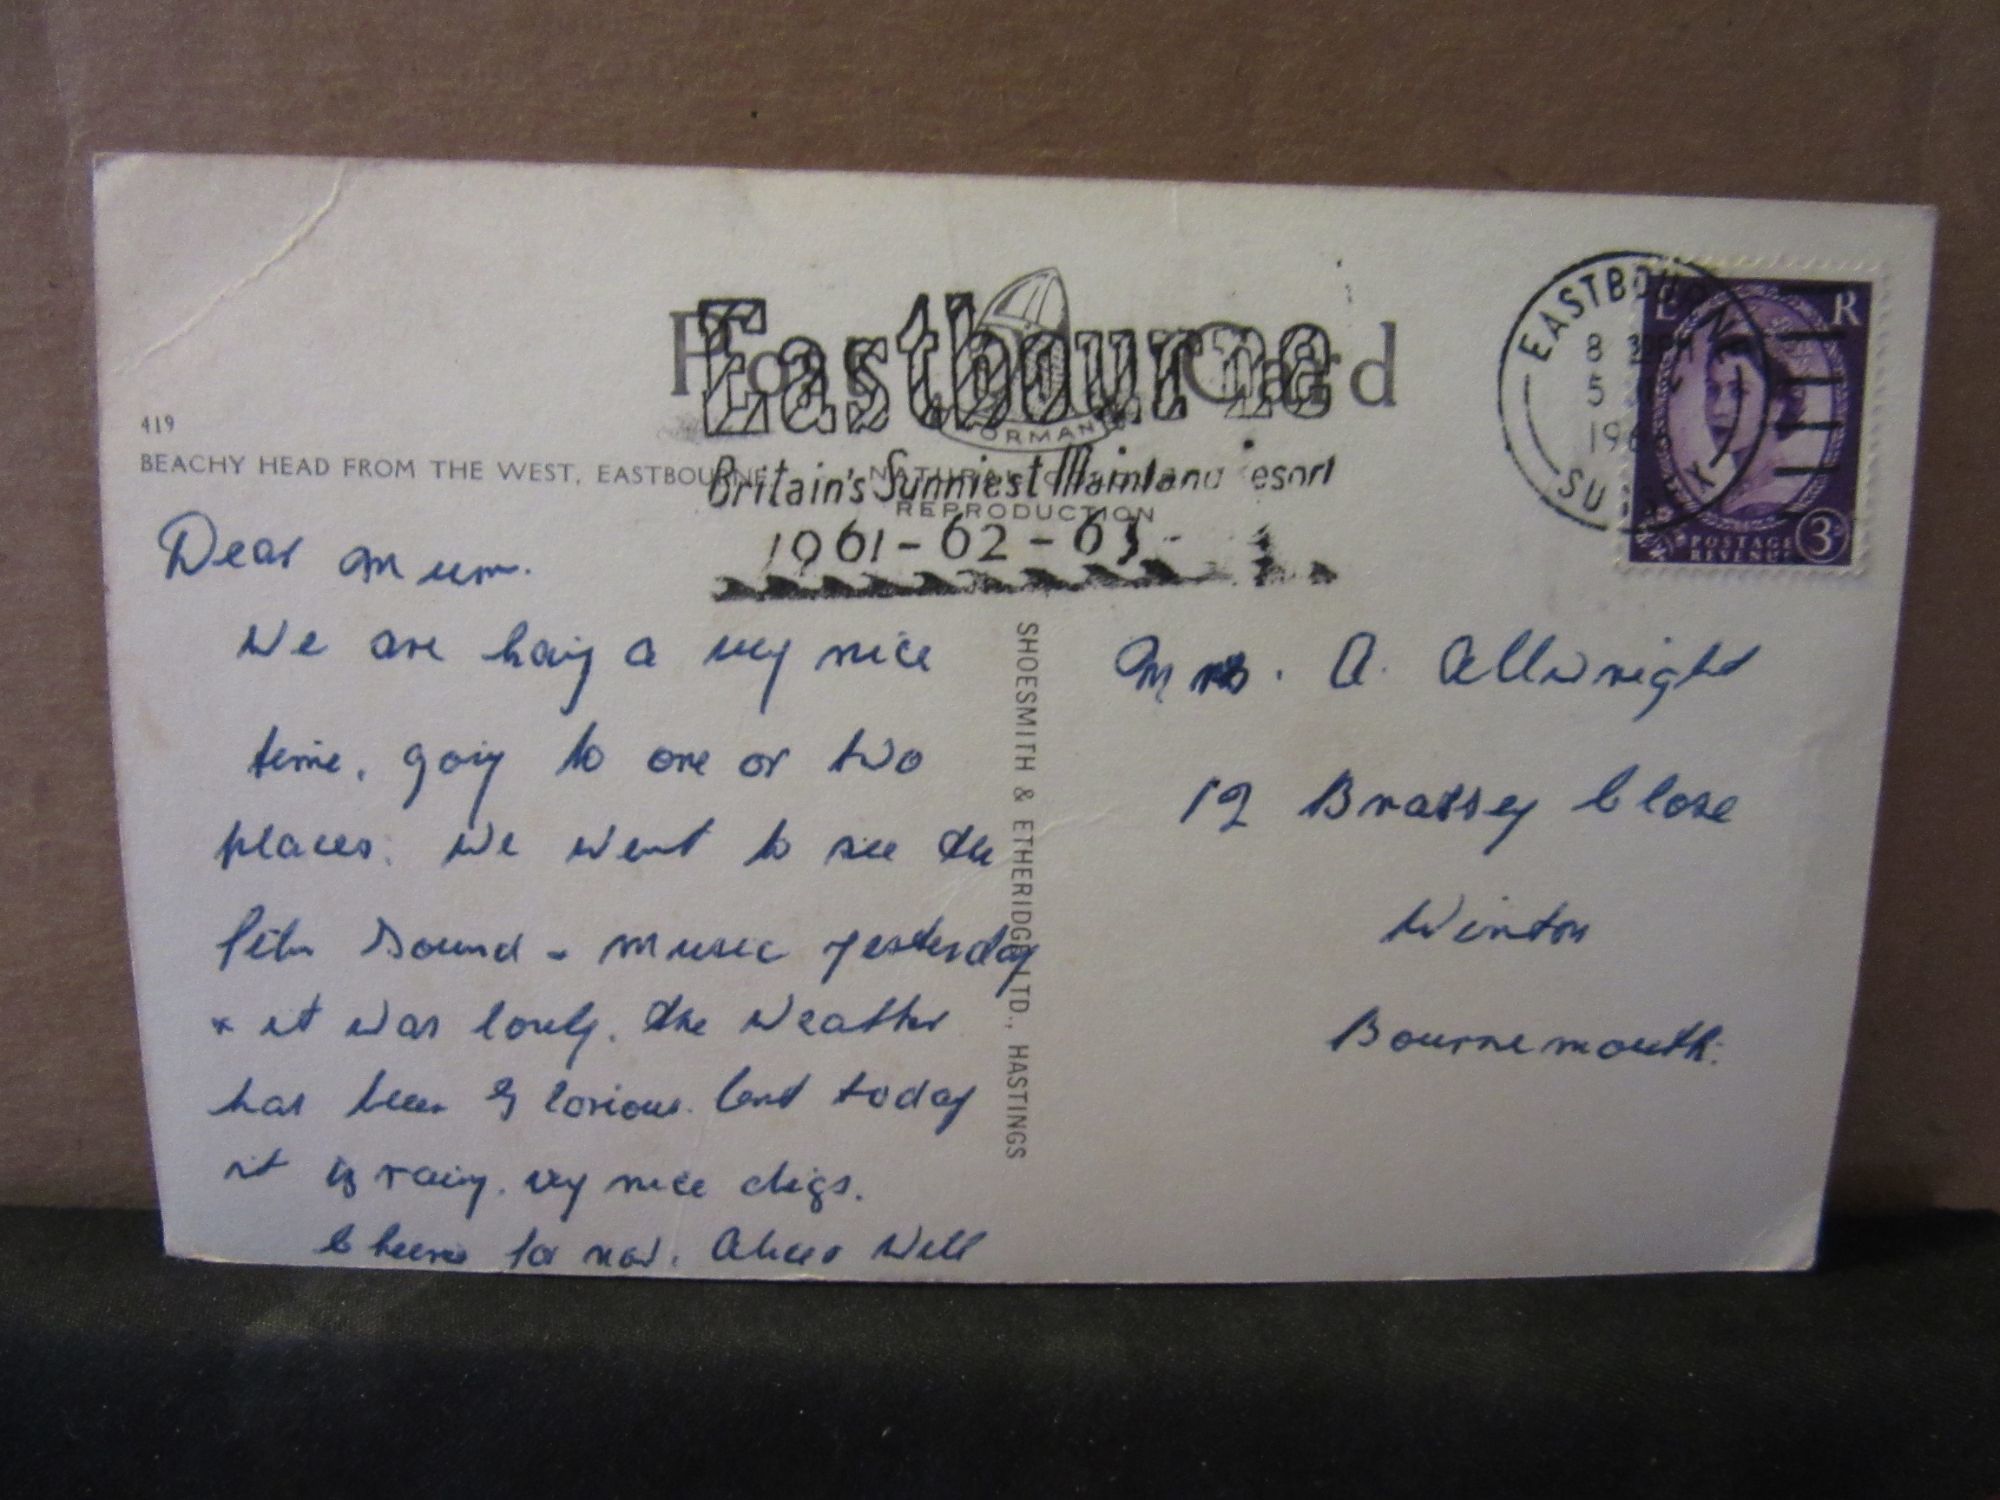 Post Card
NORMAN
Eastbourne
Britain's Sunniest Mainland Resort
1961-62-63
EASTBOURNE
8 30PM
5
196
SUSSEX
E R
POSTAGE
REVENUE
3D
419
BEACHY HEAD FROM THE WEST, EASTBOURNE
NATURAL COLOUR
REPRODUCTION
SHOESMITH & ETHERIDGE LTD., HASTINGS
Dear Mum.
We are having a very nice
time, going to one or two
places. We went to see the
film Sound - music yesterday
& it was lovely. The weather
has been Glorious. but today
it is raing. very nice digs.
Cheerio for now. Alice & Will
Mrs. A. Allwright
12 Brassey Close
Winton
Bournemouth.